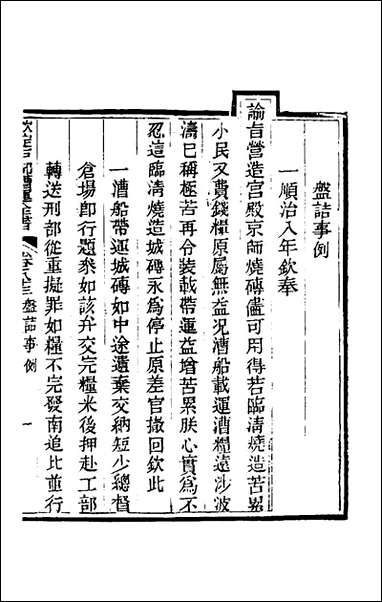 盤詰事例
一順治八年欽奉
諭旨營造宮殿京師燒磚儘可用得若臨清燒造苦累
小民又費錢糧原屬無益况漕船載運漕糧遠涉波
濤已稱極苦再令裝載帶運益增苦累朕心實為不
忍這臨清燒造城磚永為停止原差官撤回欽此
一漕船帶運城磚如中途遺棄交納短少總督
倉場卽行題叅如該弁交完糧米後押赴工部
轉送刑部從重擬罪如糧不完發南追比並行
欽定戶部漕運全書 卷八十三 盤詰事例 一